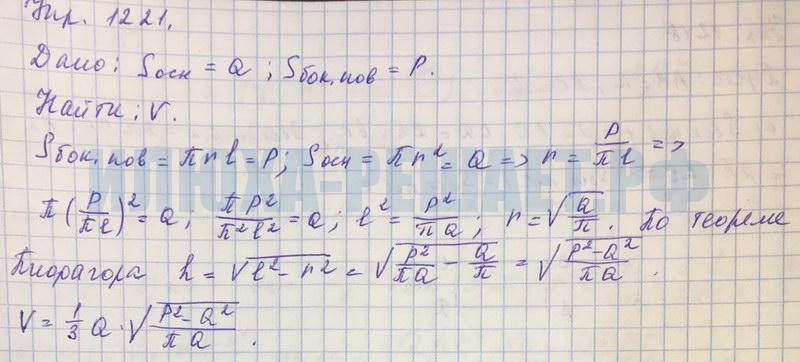 Упр. 1221.
Дано: Sосн = Q; Sбок.пов = P.
Найти: V.
Sбок.пов = πrl = P; Sосн = πr² = Q => r = P/πl =>
π(P/πl)² = Q; πP²/π²l² = Q; l² = P²/πQ; r = √(Q/π). По теореме
Пифагора h = √(l² - r²) = √(P²/πQ - Q/π) = √((P² - Q²)/πQ).
V = 1/3 Q · √((P² - Q²)/πQ).
ИЛЮХА-РЕШАЕТ.РФ